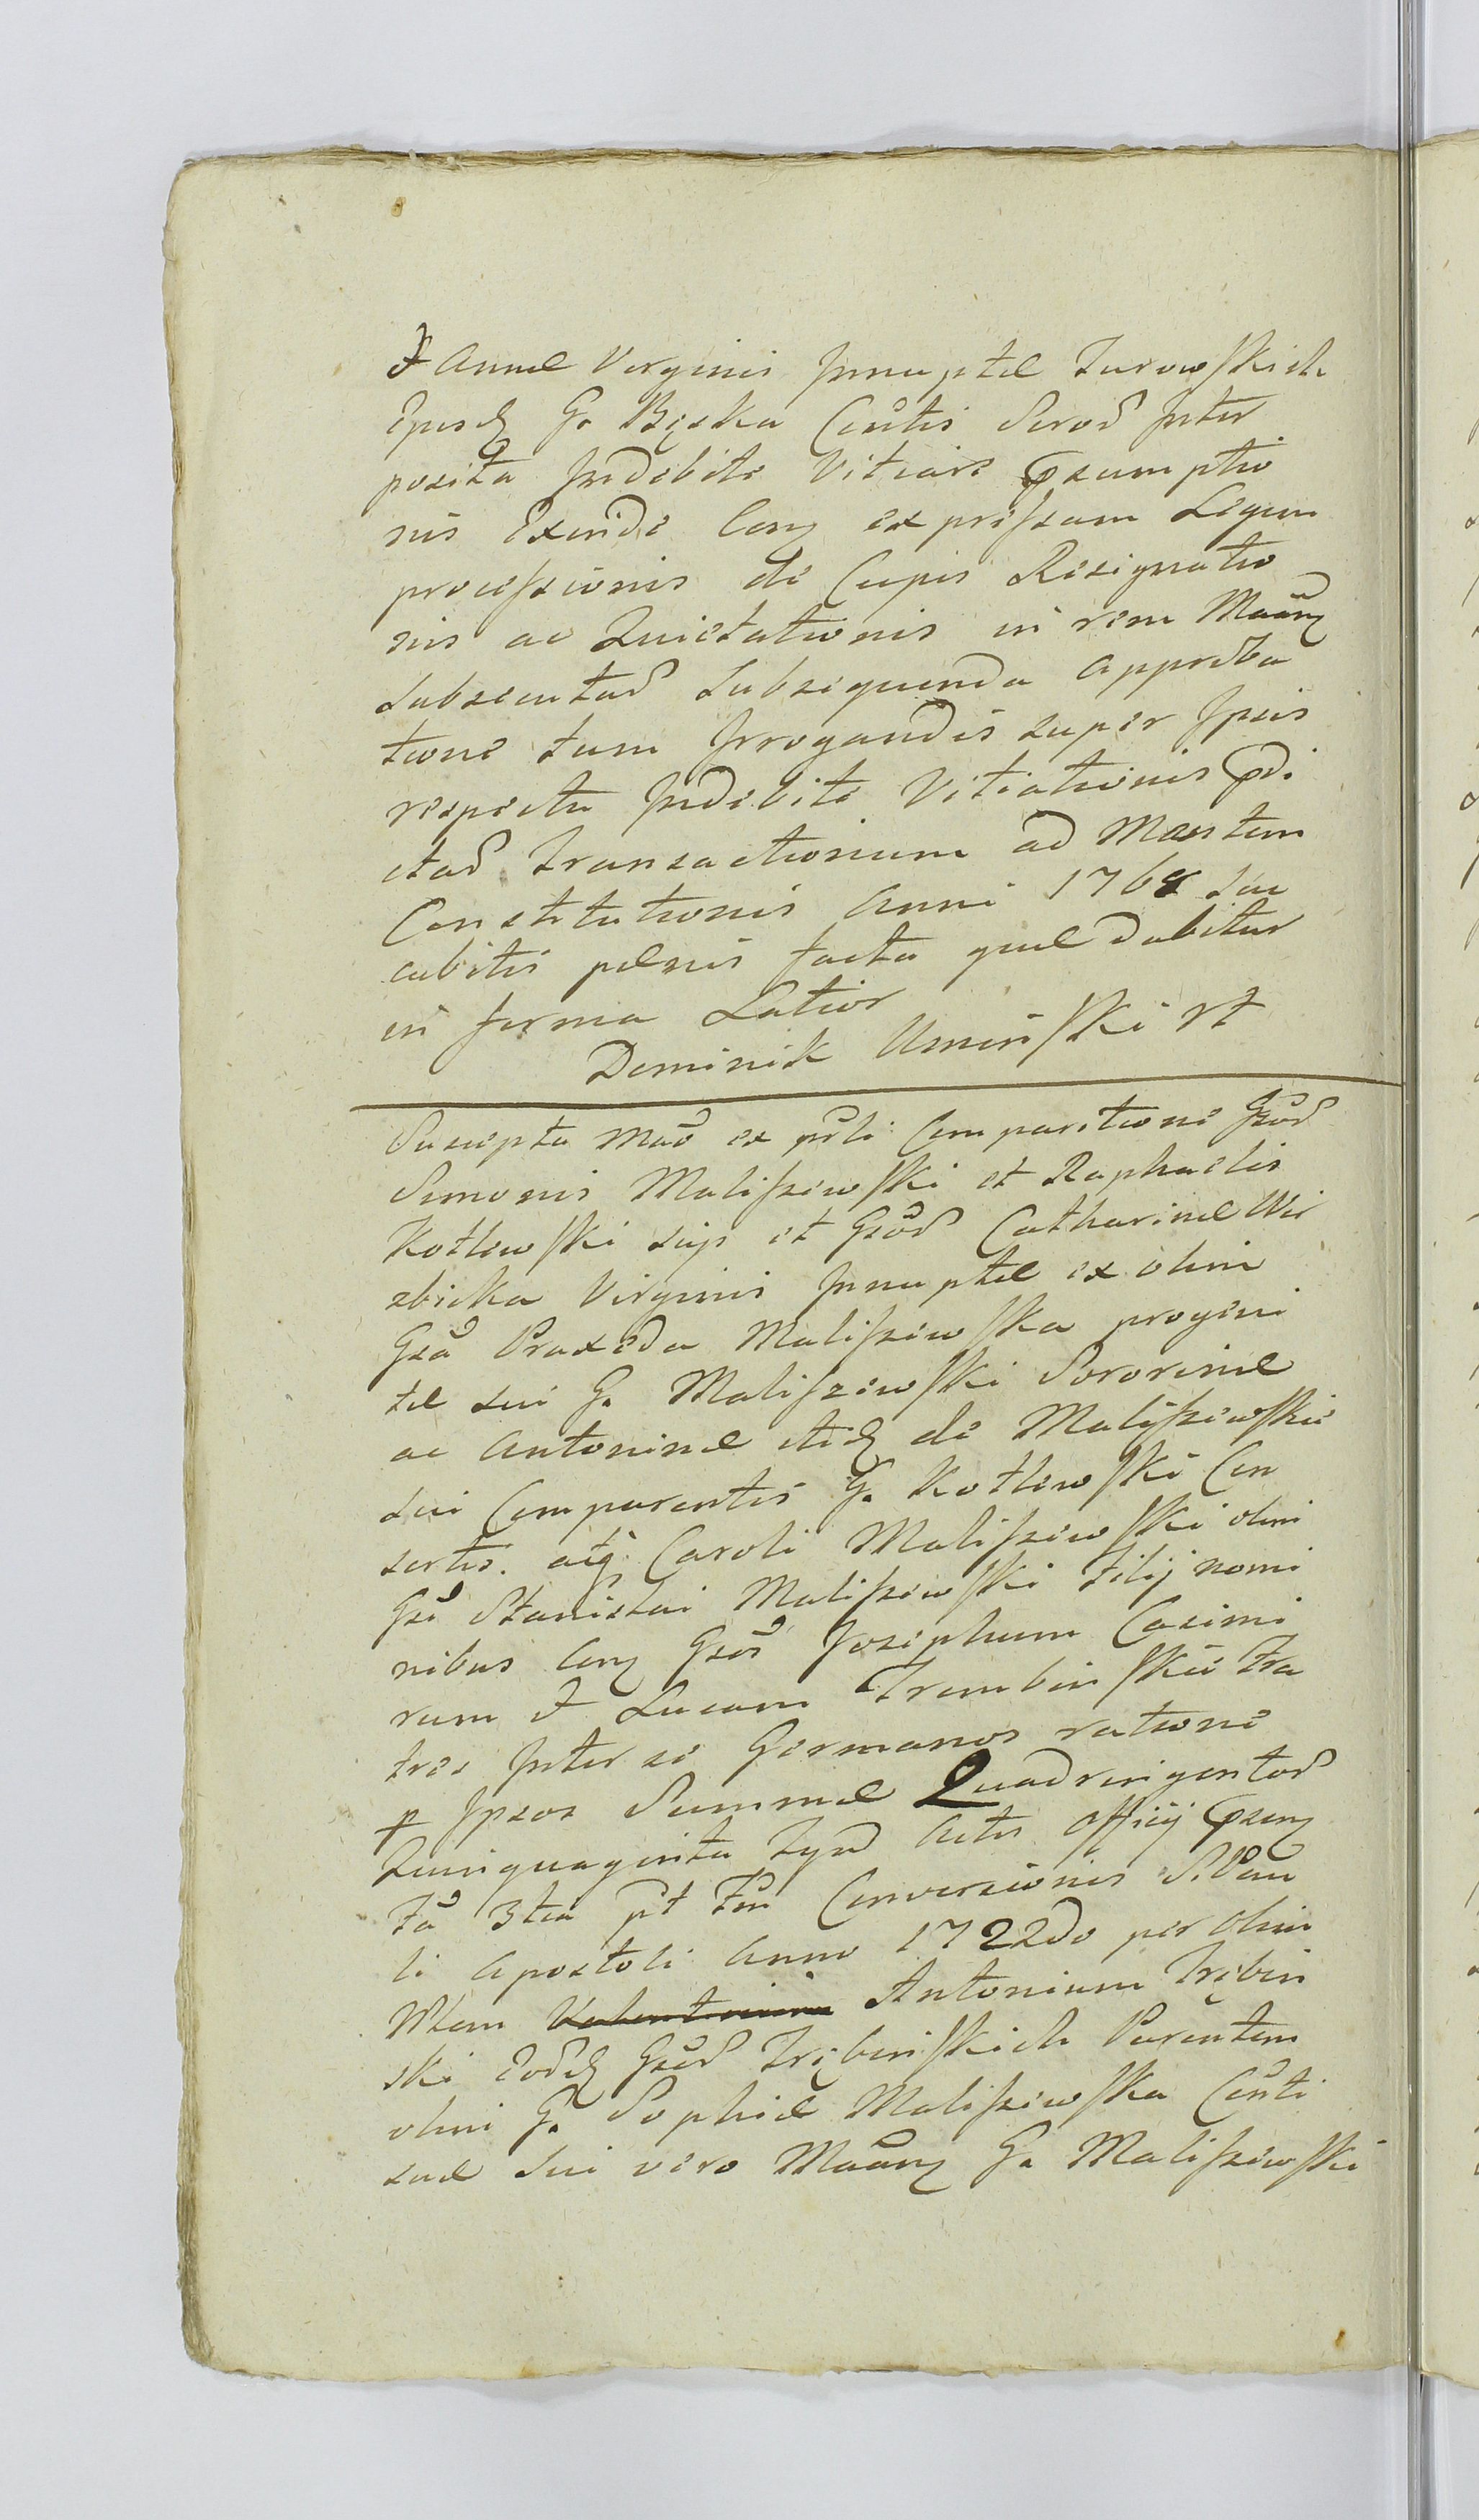 & Annæ Virginis Innuptæ Turowskich
Ejusdz G. Bęska Cōrtis Sorod Inter
posita Indebite Vitiare Præsumptio
nis Exinde Conz expressam Legum
processionis de Capis Resignatio
nis ac Quietationis in rem Maānz
Subsecutad Subsequenda Approba
tione tum Irrogandis super Ipsis
respectu Indebite Vitiationis Prædi
ctad Transactionum ad Mentem
Constitutionis Anni 1768 Suc
cubitis pænis facta quæ dabitur
in forma Latior
Dominik Umiński rt
Suscepta Mao ex prli Comparitione Gsod
Simonis Maliszewski et Raphaelis
Kotlewski suis et Gsod Catharinæ Wir
zbicka Virginis Innuptæ ex olim
Gsa Praxeda Maliszewska progeni
tæ sui G. Maliszewski Sororinæ
ac Antoninæ itidz de Maliszewskie
sui Comparentis G. Kotlewski Con
sortis. atq; Caroli Maliszewski olim
Gsi Stanislai Maliszewski Filij nomi
nibus Conz Gsos Josephum Casimi
rum & Lucam Trembinskie Fra
tres Inter se Germanos ratione
p Ipsos Summæ Quadringentod
Quinquaginta Tynd Actis Officij Præsenz
Fa 3tia pt Fm Conversionis S. Pau
li Apostoli Anno 1722do per olim
Mlem Antonium Trębin
ski Eordz Gsod Trębinskich Parentem
olim G. Sophiæ Maliszewska Cōnti
suæ Sui vero Maānz G. Maliszewski